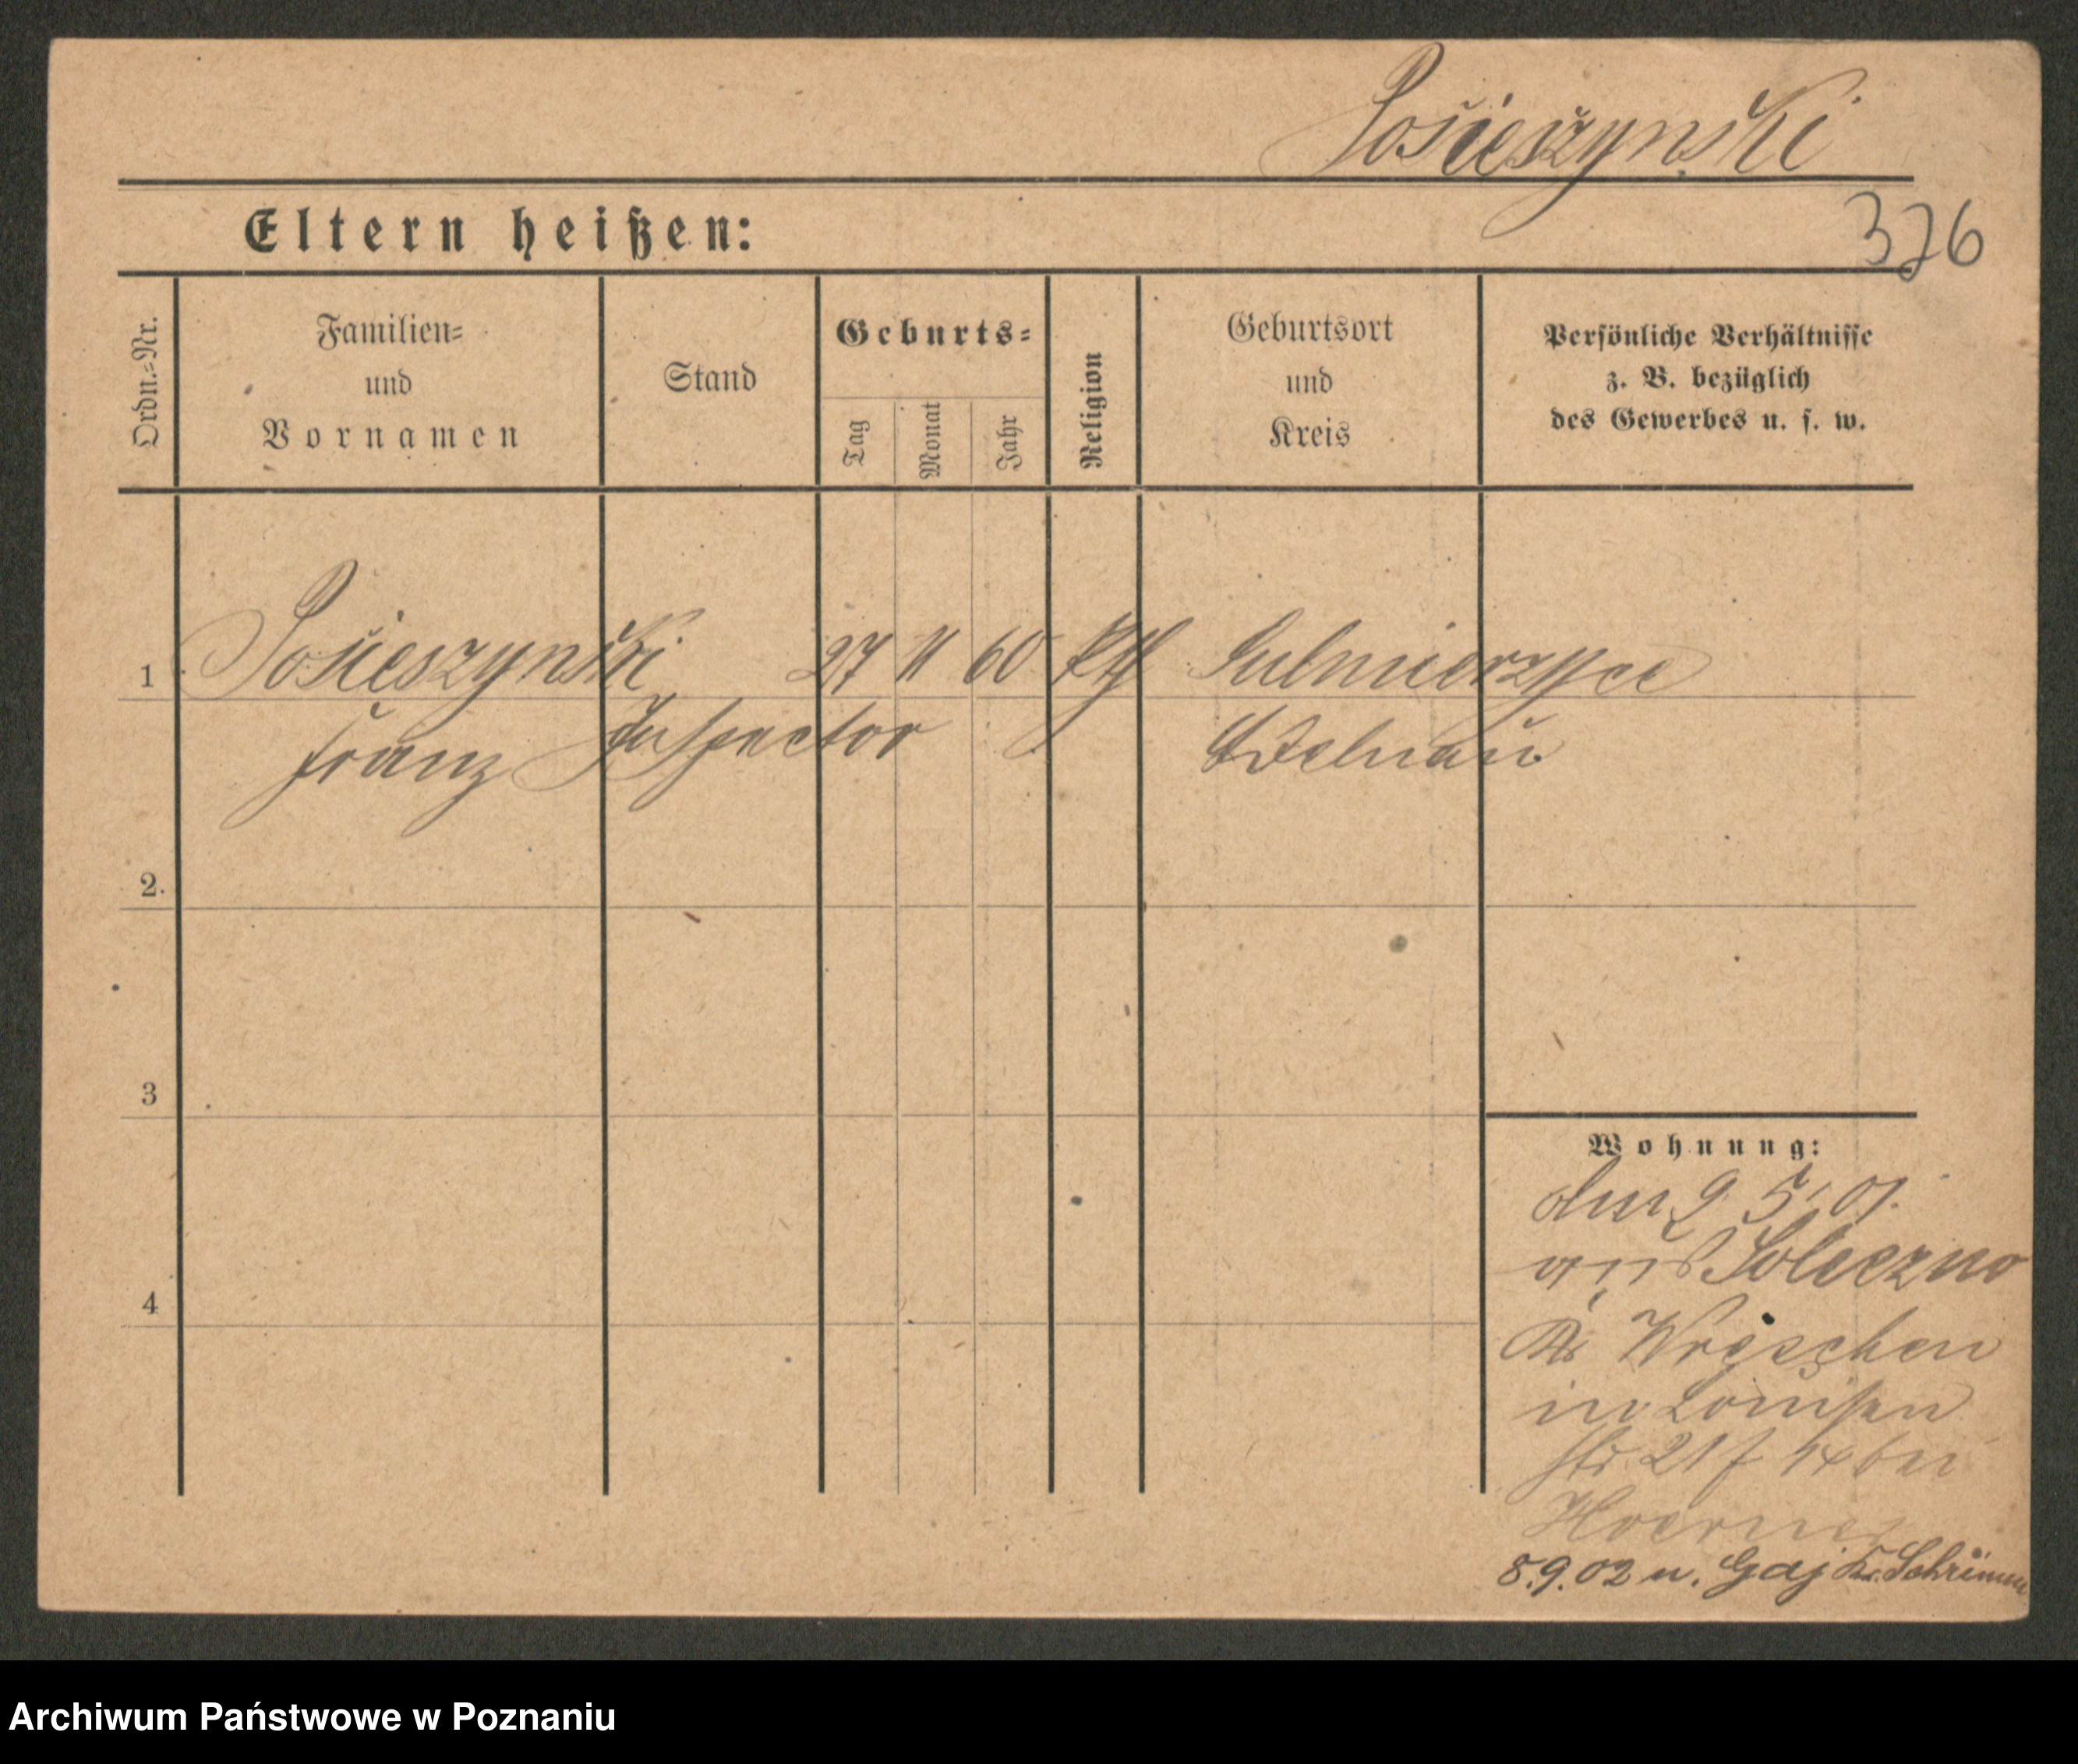 Posieszynski
376
Eltern heißen:
Ordn.-Nr.
Familien-
und
Vornamen
Stand
Geburts-
Tag
Monat
Jahr
Religion
Geburtsort
und
Kreis
Persönliche Verhältnisse
z. B. bezüglich
des Gewerbes u. s. w.
1 Posieszynski 27 11 60 kth Sulmierzyce
Franz Inspector Adelnau
2.
3
4
Wohnung:
am 9 5. 01.
aus Soleczno
Kr Wreschen
in Louisen
str 21 bei
8.9.02 n. Gaj Kr. Schrimm
Archiwum Państwowe w Poznaniu